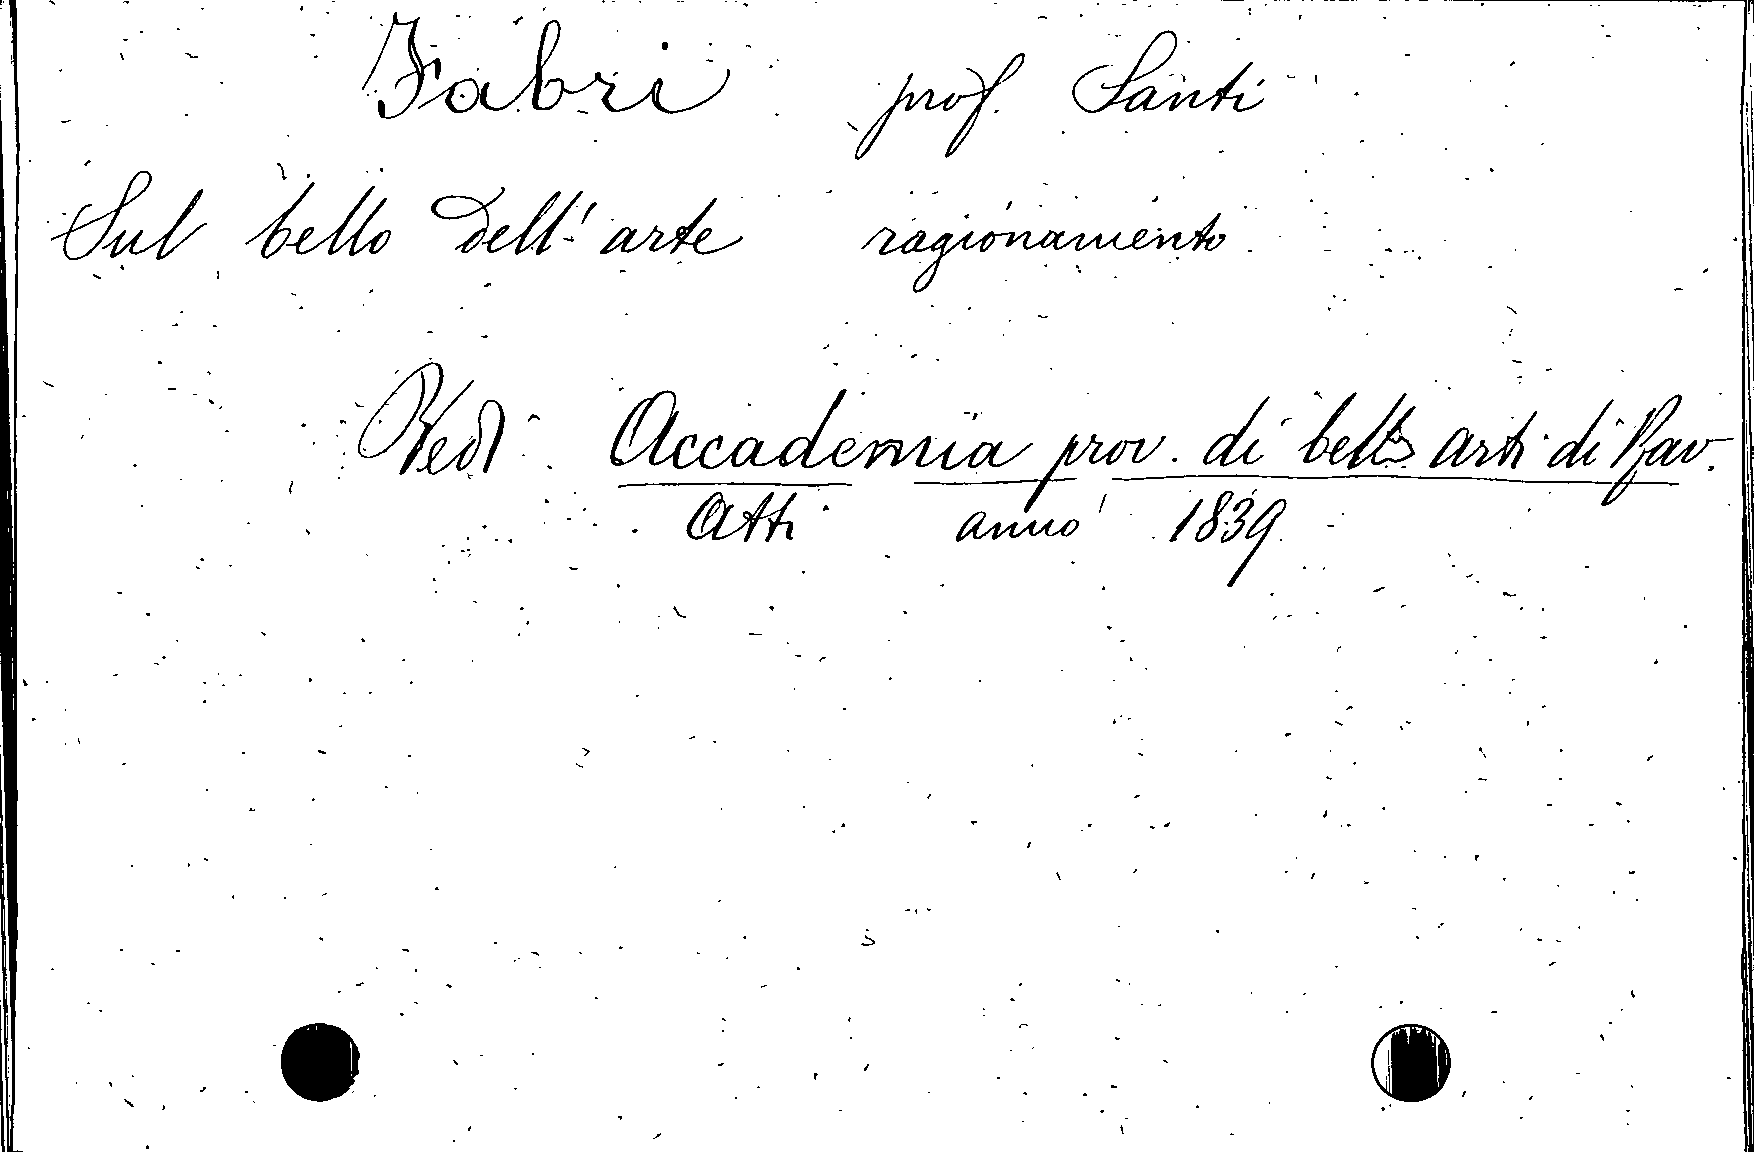 Fabri prof. Santi
Sul bello dell'arte ragionamento
Vedi Accademia prov. di belle arti di Rav.
Atti anno 1839